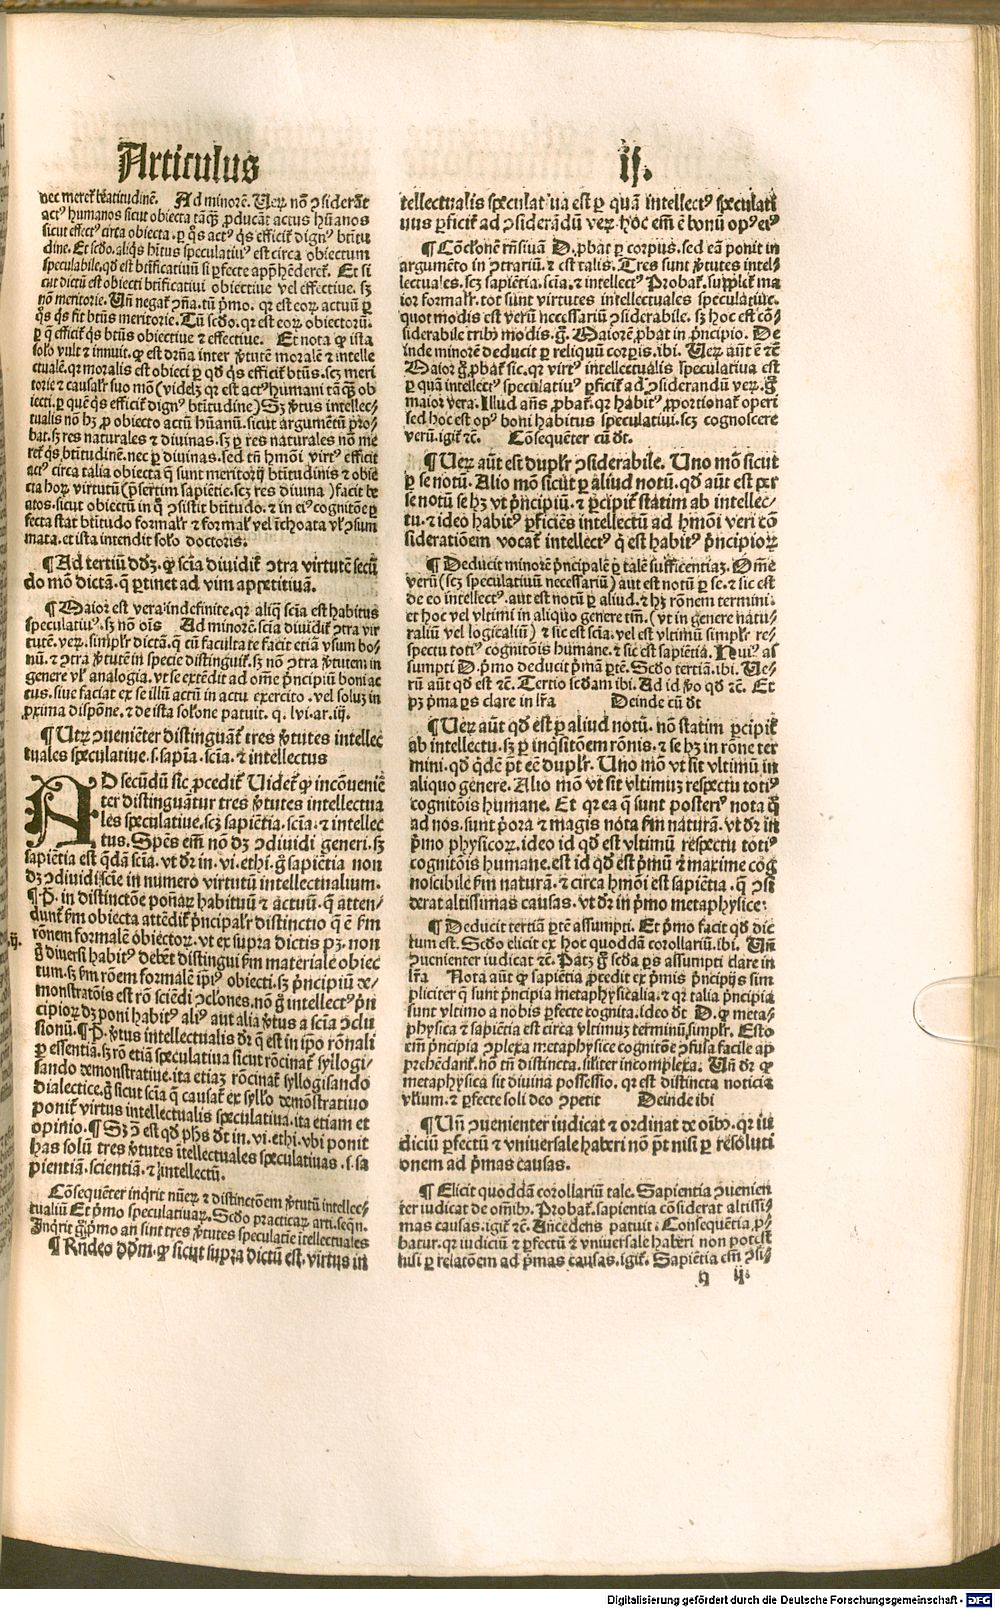 Articulus
ij.
nec meret᷑ bt̄atitudinē. Ad minorē. Ueꝝ nō ↄsiderāt
actꝰ humanos sicut obiecta tāꝙꝫ ꝓducāt actus hūanos
sicut effectꝰ circa obiecta. ꝑ qͦs actꝰ qͥs efficit᷑ dignꝰ btītu
dine. Et scd̓o. aliqͥs hītus speculatiuꝰ est circa obiectum
speculabile. qd̓ est btīficatiuū si ꝑfecte app̄hēderet᷑. Et si
cut dictū est obiecti btīficatiui obiectiue vel effectiue. sꝫ
nō meritorie. Uñ negat᷑ ↄña. tū pͥmo. qꝛ est eoꝝ actuū ꝑ
qͦs qͥs fit btūs meritorie. Tū scd̓o. qꝛ est eoꝝ obiectorū.
ꝑ q̄ efficit᷑ qͥs btūs obiectiue ⁊ effectiue. Et nota ꝙ ista
solo vult ⁊ innuit. ꝙ est dr̄ña inter v̓tutē moralē ⁊ intelle
ctualē. qꝛ moralis est obiecti ꝑ qd̓ qͥs efficit᷑ btūs. scꝫ meri
torie ⁊ causalr̓ suo mō (videlꝫ qꝛ est actꝰ humani tāꝙꝫ ob
iecti. ꝑ quē qͥs efficit᷑ dignꝰ btītudine) Sꝫ v̓tus intellec-
tualis nō hꝫ ꝓ obiecto actū hūanū. sicut argumētū ꝓro-
bat. sꝫ res naturales ⁊ diuinas. sꝫ ꝑ res naturales nō me
ret᷑ qͥs btītudinē. nec ꝑ diuinas. sed tñ hmōi virtꝰ efficit
actꝰ circa talia obiecta q̄ sunt meritorij btītudinis ⁊ obie
cta hoꝝ virtutū (p̄sertim sapiētie. scꝫ res diuina) facit be
atos. sicut obiectū in qͦ ↄsistit btītudo. ⁊ in eiꝰ cognitōe ꝑ
fecta stat btītudo formalr̓ ⁊ formalr̓ vel ichoata vl̓ ↄsum
mata. et ista intendit solo doctoris.
¶ Ad tertiū dd̓ꝫ. ꝙ scia diuidit᷑ ↄtra virtutē secū
do mō dictā. q̄ ꝑtinet ad vim appetitiuā.
¶ Maior est vera indefinite. qꝛ aliq̄ scīa est habitus
speculatiuꝰ. sꝫ nō oīs Ad minorē. scīa diuidit᷑ ↄtra vir
tutē. veꝝ. simplr̓ dictā. q̄ cū facultate facit etiā vsum bo-
nū. ⁊ ↄtra v̓tutē in specie distinguit᷑. sꝫ nō ↄtra v̓tutem in
genere vl̓ analogia. vt se extēdit ad omē pͥncipiū boni ac
tus. siue faciat ex se illū actū in actu exercito. vel soluꝫ in
ꝓxima dispōne. ⁊ de ista solōne patuit. q. lvi. ar. iij.
¶ Utꝝ ↄueniēter distinguāt᷑ tres v̓tutes intellec
tuales speculatiue. s. sapīa. scīa. ⁊ intellectus
AD secūdū sic ꝓcedit᷑. Uidet᷑ ꝙ incōueniē
ter distinguātur tres v̓tutes intellectua
les speculatiue. scꝫ sapiētia. scīa. ⁊ intellec
tus. Spēs em̄ nō dꝫ ↄdiuidi generi. sꝫ
sapiētia est qͣdā scīa. vt dr̄ in. vi. ethi. g̊ sapiētia non
dꝫ ↄdiuidi scīe in numero virtutū intellectualium.
¶ P̄. in distinctōe ponāꝝ habituū ⁊ actuū. q̄ atten-
dunt᷑ fm̄ obiecta attēdit᷑ pͥncipalr̓ distinctio q̄ ē fm̄
rōnem formalē obiectoꝝ. vt ex supra dictis pꝫ. non
g̊ diuersi habitꝰ debēt distingui fm̄ materiale obiec
tum. sꝫ fm̄ rōem formalē ip̄iꝰ obiecti. sꝫ pͥncipiū de-
monstratōis est rō sciēdi ↄclōnes. nō g̊ intellectꝰ pͥn
cipioꝝ dꝫ poni habitꝰ aliꝰ aut alia v̓tus a scīa ↄclu
sionū. ¶ P̄. v̓tus intellectualis dr̄ q̄ est in ip̄o rōnali
ꝑ essentiā. sꝫ rō etiā speculatiua sicut rōcinat᷑ syllogi-
sando demonstratiue. ita etiaꝫ rōcinat᷑ syllogisando
dialectice. g̊ sicut scīa q̄ causat᷑ ex syllo demōstratiuo
ponit᷑ virtus intellectualis speculatiua. ita etiam et
opinio. ¶ Sꝫ ↄ̄ est qd̓ phs dt̄ in. vi. ethi. vbi ponit
has solū tres v̓tutes ītellectuales speculatiuas. s. sa
pientiā. scientiā. ⁊ intellectū.
Cōsequēter inqͥrit nūeꝝ ⁊ distinctōem v̓tutū intellec-
tualiū Et pͥmo speculatiuaꝝ. Scd̓o practicaꝝ arti. seqñ.
Inqͥrit g̊ pͥmo an sint tres v̓tutes speculatie itellectuales
¶ Rñdeo dd̓m. ꝙ sicut supra dictū est. virtus in
tellectualis speculatiua est ꝑ quā intellectꝰ speculati
uus ꝑficit᷑ ad ↄsiderādū veꝝ. hoc em̄ ē bonū opꝰ eiꝰ
¶ Cōclōnē rñsiuā D. ꝓbat ꝑ corpus. sed eā ponit in
argumēto in ↄtrariū. ⁊ est talis. Tres sunt v̓tutes intel-
lectuales. scꝫ sapiētia. scīa. ⁊ intellectꝰ Probat᷑. supplet᷑ ma
ior formalr̓. tot sunt virtutes intellectuales speculatiue.
quot modis est verū necessariū ↄsiderabile. sꝫ hoc est cō-
siderabile tribꝰ modis. g̊. Maiorē ꝓbat in pͥncipio. De
inde minorē deducit ꝑ reliquū corpis. ibi. Ueꝝ aūt ē ⁊c̄.
Maior g̊ ꝓbat᷑ sic. qꝛ virtꝰ intellectualis speculatiua est
ꝑ quā intellectꝰ speculatiuꝰ ꝑficit᷑ ad ↄsiderandū veꝝ. g̊
maior vera. Illud añs ꝓbat᷑. qꝛ habitꝰ ꝓportionat᷑ operi
sed hoc est opꝰ boni habitus speculatiui. scꝫ cognoscere
verū. igit᷑ ⁊c̄. Cōsequēter cū dt̄.
¶ Ueꝝ aūt est duplr̓ ↄsiderabile. Uno mō sicut
ꝑ se notū. Alio mō sicut ꝑ aliud notū. qd̓ aūt est per
se notū se hꝫ vt pͥncipiū. ⁊ ꝑcipit᷑ statim ab intellec-
tu. ⁊ ideo habitꝰ ꝑficiēs intellectū ad hmōi veri cō
sideratiōem vocat᷑ intellectꝰ q̄ est habitꝰ pͥncipioꝝ
¶ Deducit minorē pͥncipalē ꝑ talē sufficentiaꝫ. Om̄e
verū (scꝫ speculatiuū necessariū) aut est notū ꝑ se. ⁊ sic est
de eo intellectꝰ. aut est notū ꝑ aliud. ⁊ hꝫ rōnem termini.
et hoc vel vltimi in aliquo genere tm̄. (vt in genere natu-
raliū vel logicaliū) ⁊ sic est scīa. vel est vltimū simplr̓ re-
spectu totiꝰ cognitōis humane. ⁊ sic est sapiētia. Huiꝰ as
sumpti D. pͥmo deducit pͥmā ꝑtē. Scd̓o tertiā. ibi. Ue-
rū aūt qd̓ est ⁊c̄. Tertio scd̓am ibi. Ad id v̓o qd̓ ⁊c̄. Et
pꝫ pͥma ꝑs clare in lr̄a Deinde cū dt̄
¶ Ueꝝ aūt qd̓ est ꝑ aliud notū. nō statim ꝑcipit᷑
ab intellectu. sꝫ ꝑ inqͥsitōem rōnis. ⁊ se hꝫ in rōne ter
mini. qd̓ qͥdē pt̄ eē duplr̓. Uno mō vt sit vltimū in
aliquo genere. Alio mō vt sit vltimuꝫ respectu totiꝰ
cognitōis humane. Et qꝛ ea q̄ sunt posteriꝰ nota q̊
ad nos. sunt pͥora ⁊ magis nota fm̄ naturā. vt dr̄ in
pͥmo physicoꝝ. ideo id qd̓ est vltimū respectu totiꝰ
cognitōis humane. est id qd̓ est pͥmū ⁊ maxime cog
noscibile fm̄ naturā. ⁊ circa hmōi est sapiētia. q̄ ↄsi
derat altissimas causas. vt dr̄ in pͥmo metaphysice.
¶ Deducit tertiā ꝑtē assumpti. Et pͥmo facit qd̓ dic
tum est. Scd̓o elicit ex hoc quoddā corollariū. ibi. Uñ
ↄuenienter iudicat ⁊c̄. Patꝫ g̊ scd̓a ꝑs assumpti clare in
lr̄a Nota aūt ꝙ sapiētia ꝓcedit ex pͥmis pͥncipijs sim
pliciter q̄ sunt pͥncipia metaphysicalia. ⁊ qꝛ talia pͥncipia
sunt vltimo a nobis ꝑfecte cognita. ideo dt̄ D. ꝙ meta-
physica ⁊ sapiētia est circa vltimuꝫ terminū. simplr̓. Esto
em̄ pͥncipia ↄplexa metaphysice cognitōe ↄfusa facile ap
prehēdant᷑. nō tñ distincta. silīter incomplexa. Uñ dr̄ ꝙ
metaphysica sit diuina possessio. qꝛ est distincta noticia
vl̓ium. ⁊ ꝑfecte soli deo ↄpetit Deinde ibi
¶ Uñ ↄuenienter iudicat ⁊ ordinat de oībꝰ. qꝛ iu
diciū ꝑfectū ⁊ vniuersale haberi nō pt̄ nisi ꝑ resoluti
onem ad pͥmas causas.
¶ Elicit quoddā corollariū tale. Sapientia ↄuenien
ter iudicat de om̄ibꝰ. Probat᷑. sapientia cōsiderat altissi-
mas causas. igit᷑ ⁊c̄. Añcedens patuit. Consequētia. ꝓ-
batur. qꝛ iudiciū ⁊ ꝑfectū ⁊ vniuersale haberi non potest
nisi ꝑ relatōem ad pͥmas causas. igit᷑. Sapiētia em̄ ↄsi-
ij.
Digitalisierung gefördert durch die Deutsche Forschungsgemeinschaft - DFG